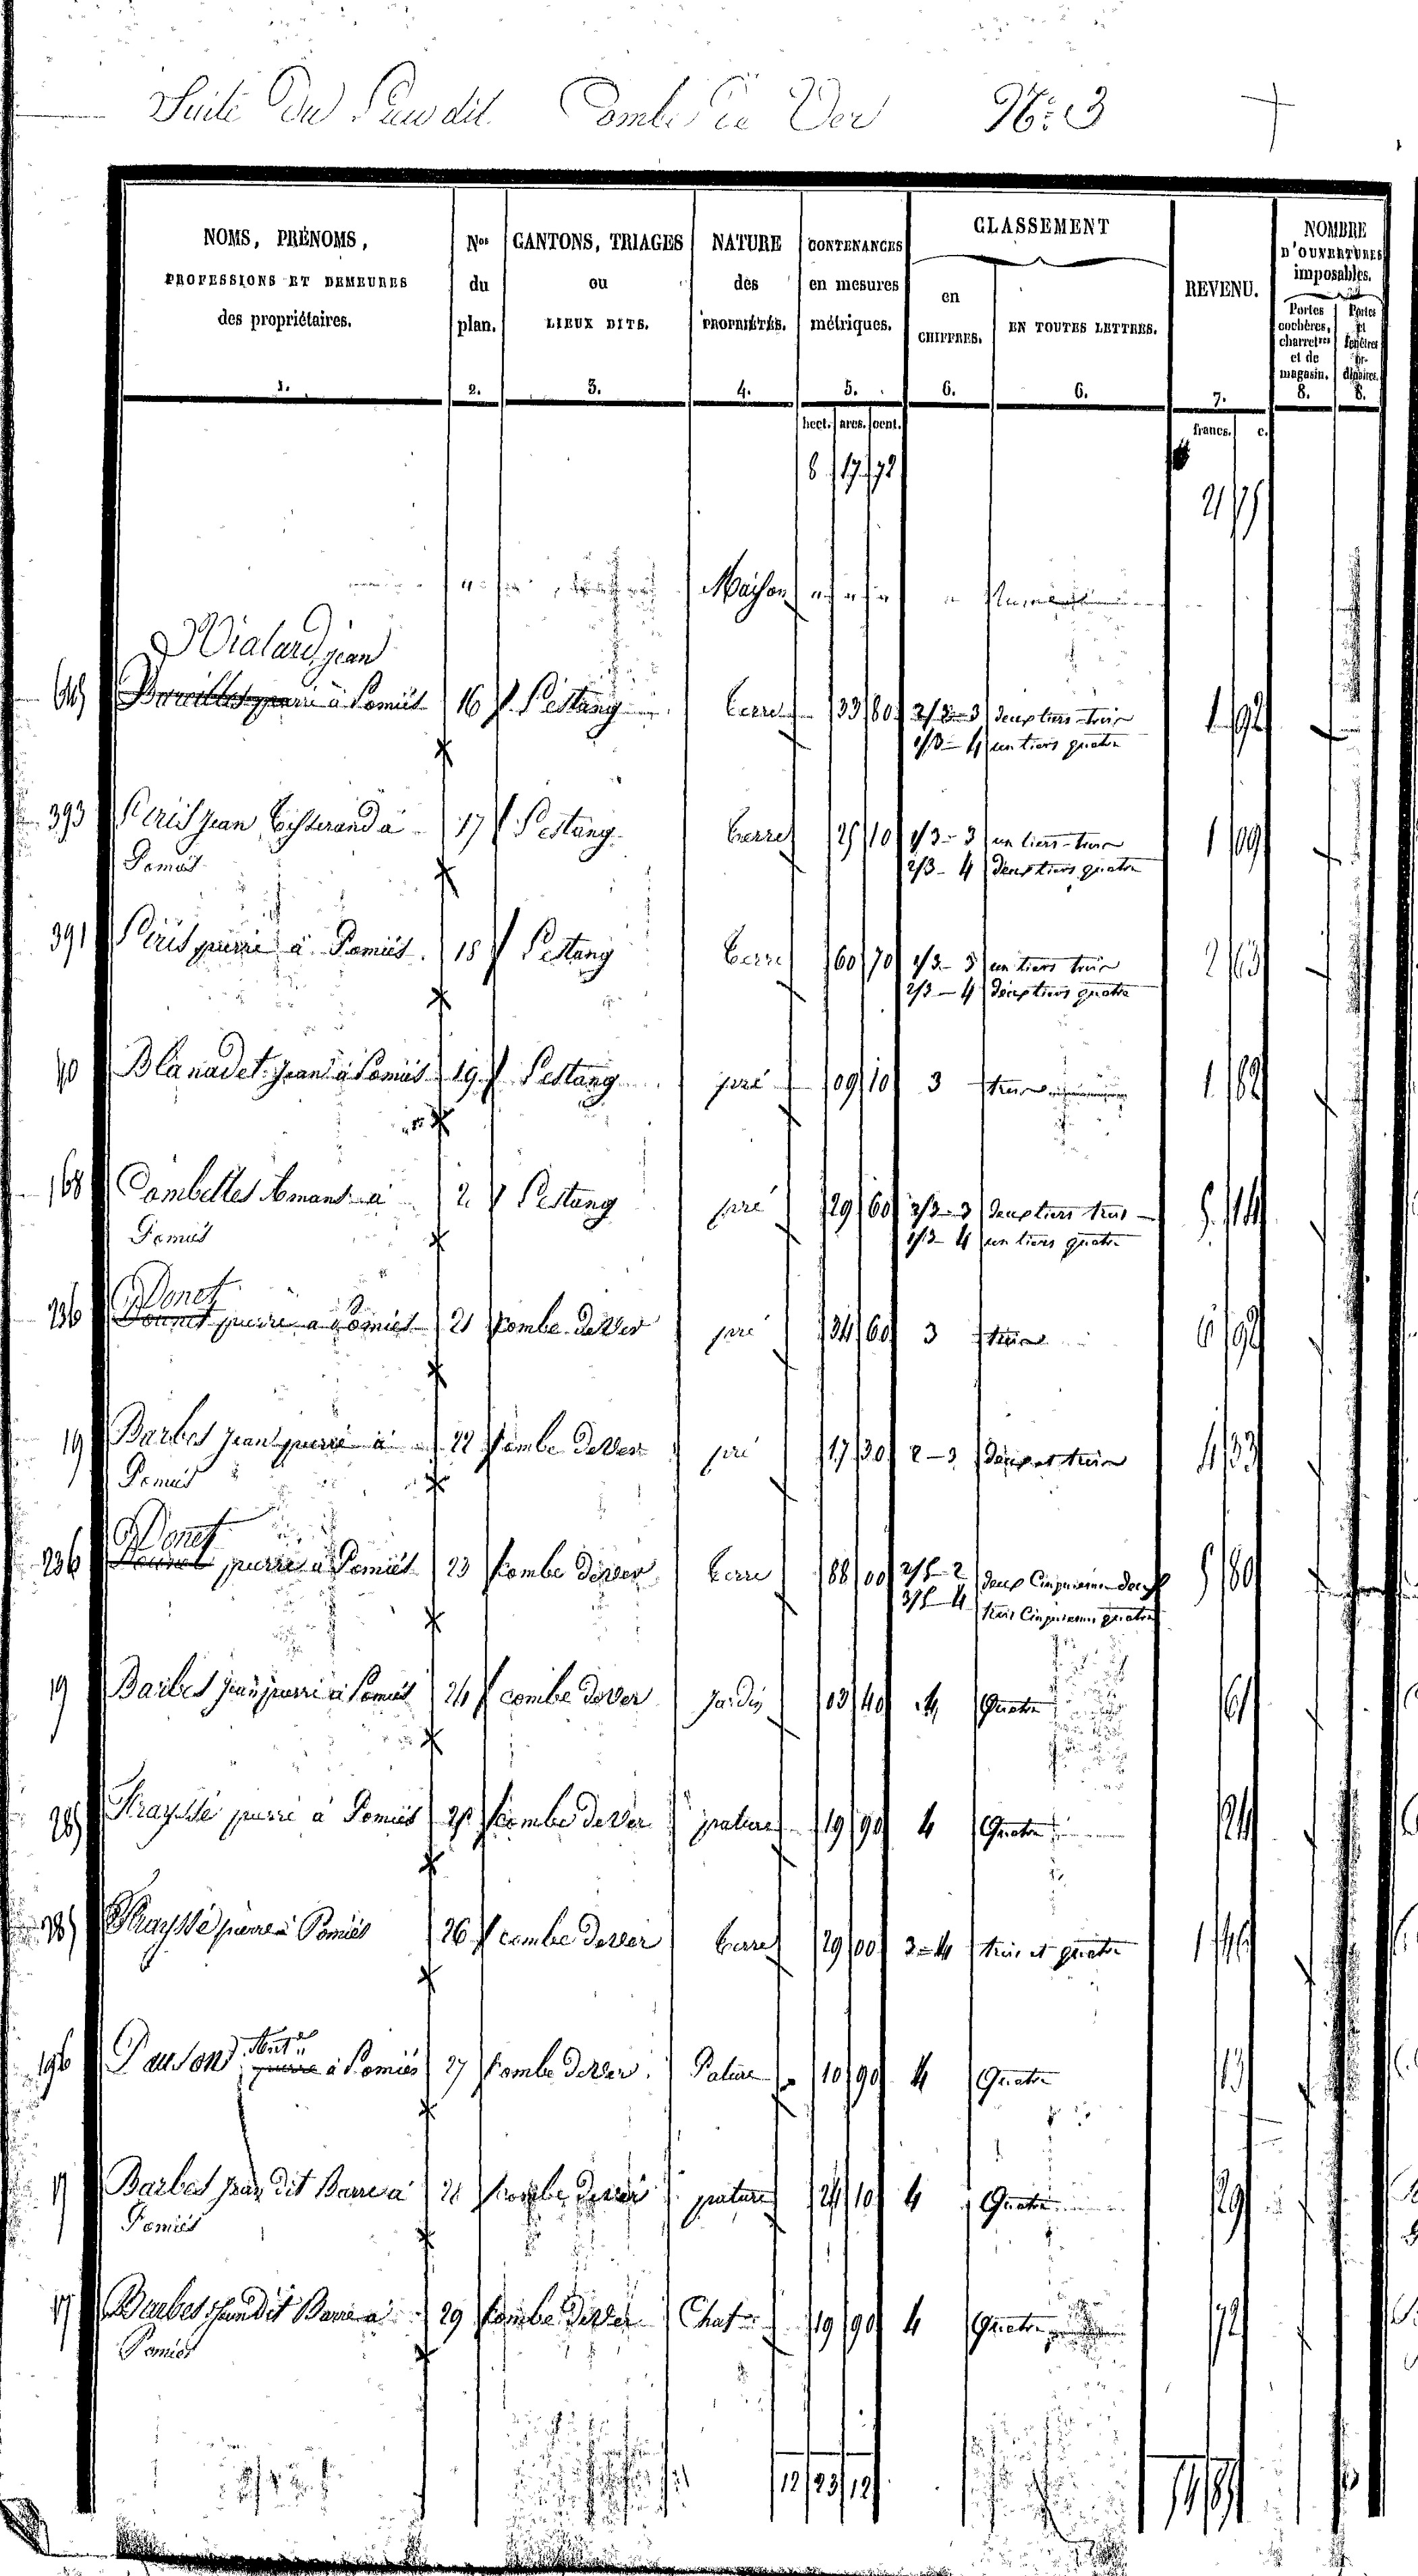 Suite Du Lieu dit Combe De Ver N.° 3
NOMS, PRÉNOMS, PROFESSIONS ET DEMEURES des propriétaires. 1.
Nos du plan. 2.
CANTONS, TRIAGES ou LIEUX DITS. 3.
NATURE des PROPRIÉTÉS. 4.
CONTENANCES en mesures métriques. 5.
CLASSEMENT
en CHIFFRES. 6.
EN TOUTES LETTRES. 6.
REVENU. 7.
NOMBRE D'OUVERTURES imposables.
Portes cochères, charretres et de magasin. 8.
Portes et fenêtres 8.
hect. ares. cent. francs. c.
8 17 72
Maison
Vialard jean
à Pomiés 16 Lestang terre 33 80 2/3 - 3 deux tiers trois 1 92
1/3 - 4 un tiers quatre
393 jean à 17 Lestang terre 25 10 1/3 - 3 un tiers trois 1 09
Pomiés 2/3 - 4 deux tiers quatre
391 pierre à Pomiés 18 Lestang terre 60 70 1/3 - 3 un tiers trois 2 63
2/3 - 4 deux tiers quatre
40 Blanadet jean à Pomiés 19 Lestang pré 09 10 3 trois 1 82
168 Combelles Amans à Lestang pré 29 60 2/3 - 3 deux tiers trois 5 14
Pomiés 1/3 - 4 un tiers quatre
Donet
236 pierre à Pomiés 21 Combe de Ver pré 34 60 3 trois 6 92
19 Barbet jean pierre à 22 Combe de Ver pré 17 30 2 - 3 deux et trois 4 33
Pomiés
Donet
236 pierre à Pomiés 23 Combe de ver terre 88 00 2/5 - 2 deux Cinquiemes deux 5 80
3/5 - 4 trois Cinquiemes quatre
19 Barbet jean pierre à Pomiés 24 combe de ver Jardin 03 40 4 Quatre 61
285 Fraysse pierre à Pomiés 25 Combe de Ver pature 19 90 4 Quatre 24
285 Fraysse pierre à Pomiés 26 combe de ver terre 29 00 3 - 4 trois et quatre 1 46
196 à Pomiés 27 Combe de ver Pature 10 90 4 Quatre 13
17 Barbet jean dit Barre à 28 Combe de ver pature 24 10 4 Quatre 29
Pomiés
17 Barbet jean dit Barre à 29 Combe de Ver Chat. 19 90 4 Quatre 72
Pomiés
12 23 12